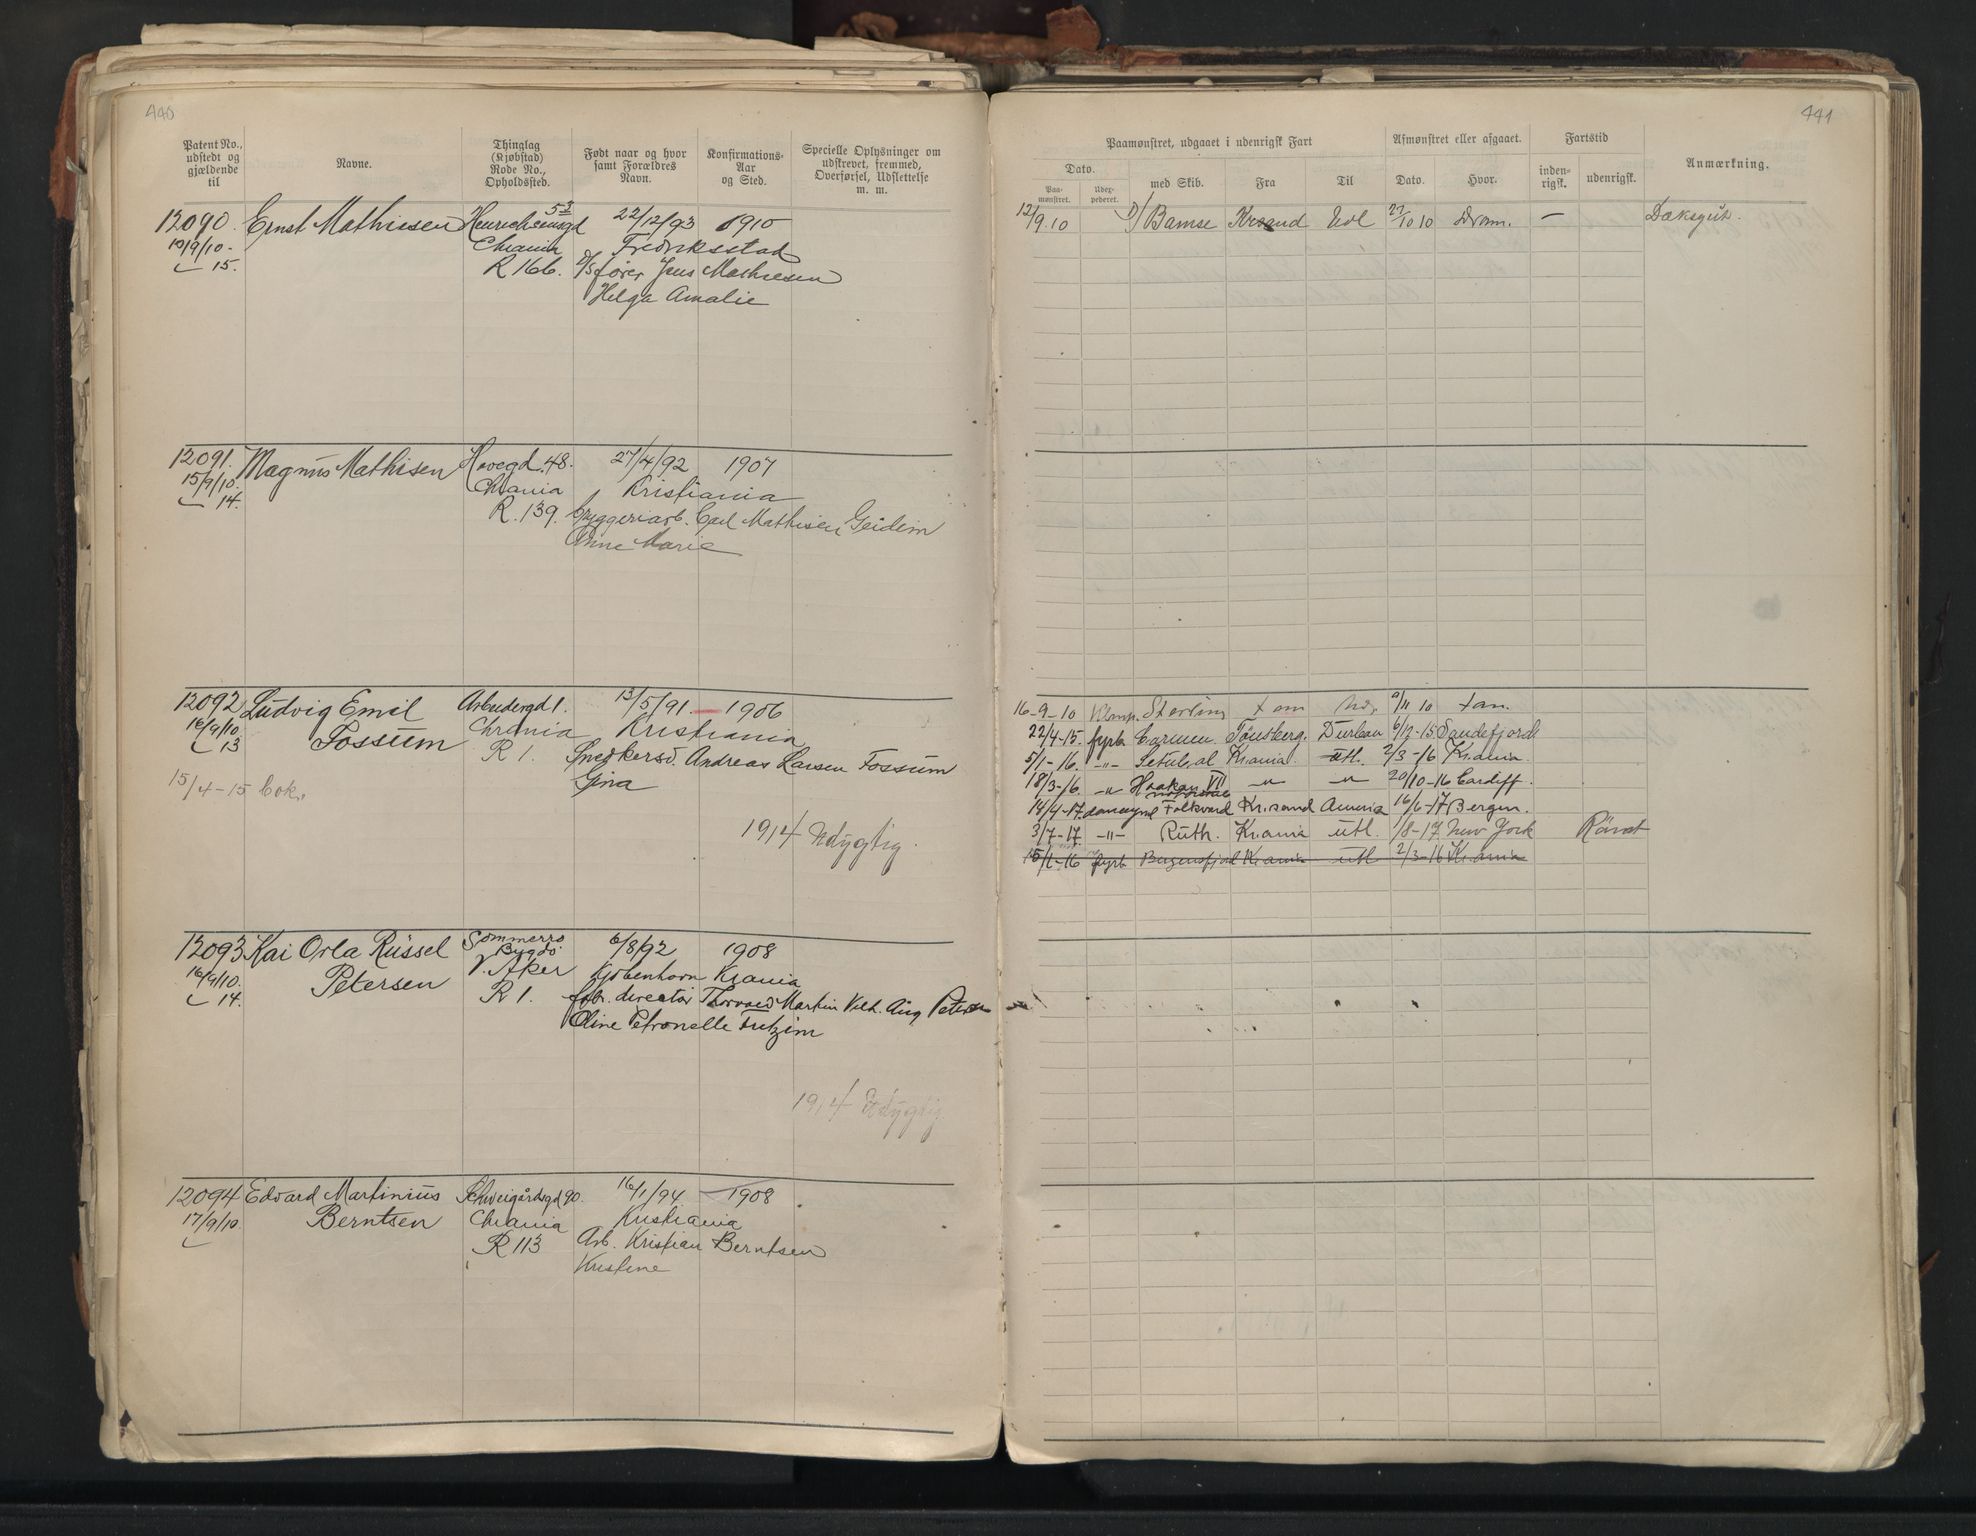 440
Patent No., udstedt og gjældende til
Navne.
Thinglag (Kjøbstad) Rode No., Opholdssted.
Født naar og hvor samt Forældres Navn.
Konfirmations-Aar og Sted.
Specielle Oplysninger om udskrevet, fremmed, Overførsel, Udslettelse m. m.
12090. Ernst Mathiesen Henrichsensgd 53 22/12/93 1910
10/9/10. Chrania Fredriksstad
15. R 166. D/S fører Jens Mathiesen
Helga Amalie
12091. Magnus Mathisen Hovegd. 48. 27/4/92 1907
15/9/10. Chrania Kristiania
14. R. 139. bryggeriarb. Carl Mathisen Geidem
Anne Marie
12092 Ludvig Emil Arbeidergd 1. 13/5/91 — 1906
16/9/10. Fossum Chrania Kristiania
13 R 1. Snedkersv. Andreas Larsen Fossum
15/4-15 Gina
1914 Udygtig.
12093 Kai Orla Russel Sommerro Bygdö 6/8/92 1908
16/9/10. Petersen V. Aker Kjøbenhavn Krania
14. R 1. fabr. director Thorvald Martin Vilh. Aug Petersen
Oline Petronelle
1914 Udygtig
12094 Edvard Martinius Schweigårdsgd 90. 16/1/94 1908
17/9/10. Berntsen Chrania Kristiania
R 113 Arb. Kristian Berntsen
Kristine
441
Paamønstret, udgaaet i udenrigsk Fart
Afmønstret eller afgaaet.
Fartstid
Anmærkning.
Dato.
Paa-mønstret. Udex-pederet. med Skib. Fra Til Dato. Hvor. inden-rigsk. udenrigsk.
12/9.10 D/ Bamse Krsand Udl 27/10 10 Dram. — Dæksgut.
16-9-10 Sterling 9/11 10
22/4-15. fyrb Carmen. Tönsberg. Durban 6/12-15 Sandefjord
5/1-16. -"- Setubal Krania. utl. 2/3-16 Krania
18/3-16. -" Haakon VII -"- -"- 20/10-16 Cardiff.
14/4-17. Folkvard Kr.sand Amerika 16/6-17 Bergen.
3/7-17. -"- Ruth. Krania utl. 1/8-17 New York Römt
15/1-16 fyrb Bergensfjord Krania utl 2/3-16 Krania